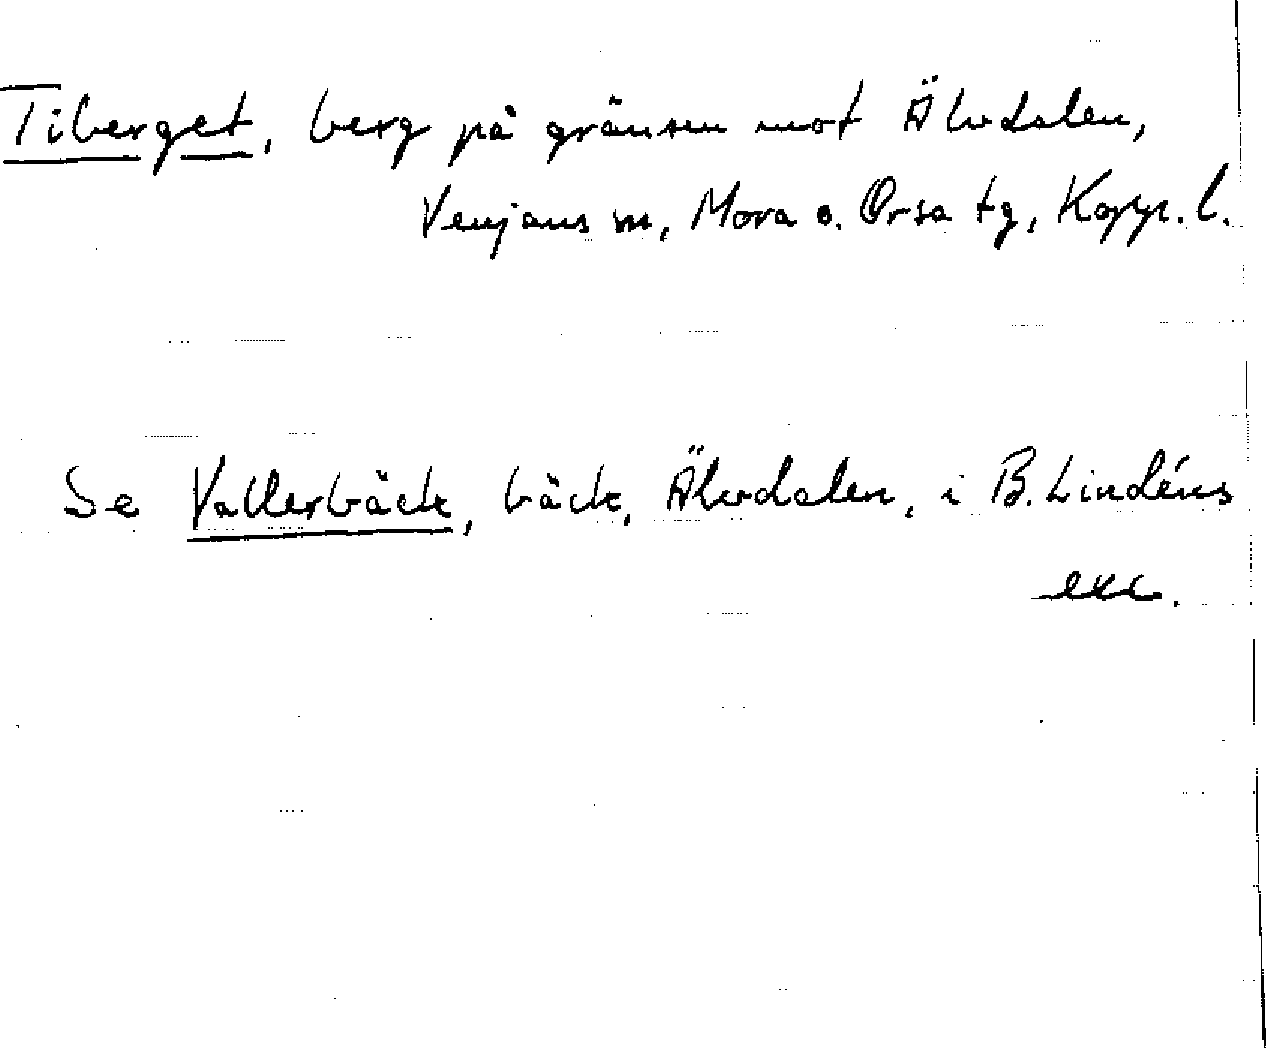 Tiberget, berg på gränsen mot Älvdalen,
Venjans sn, Mora o. Orsa tg, Kopp. l.
Se Vallerbäck, bäck, Älvdalen, i B. Lindéns
exc.